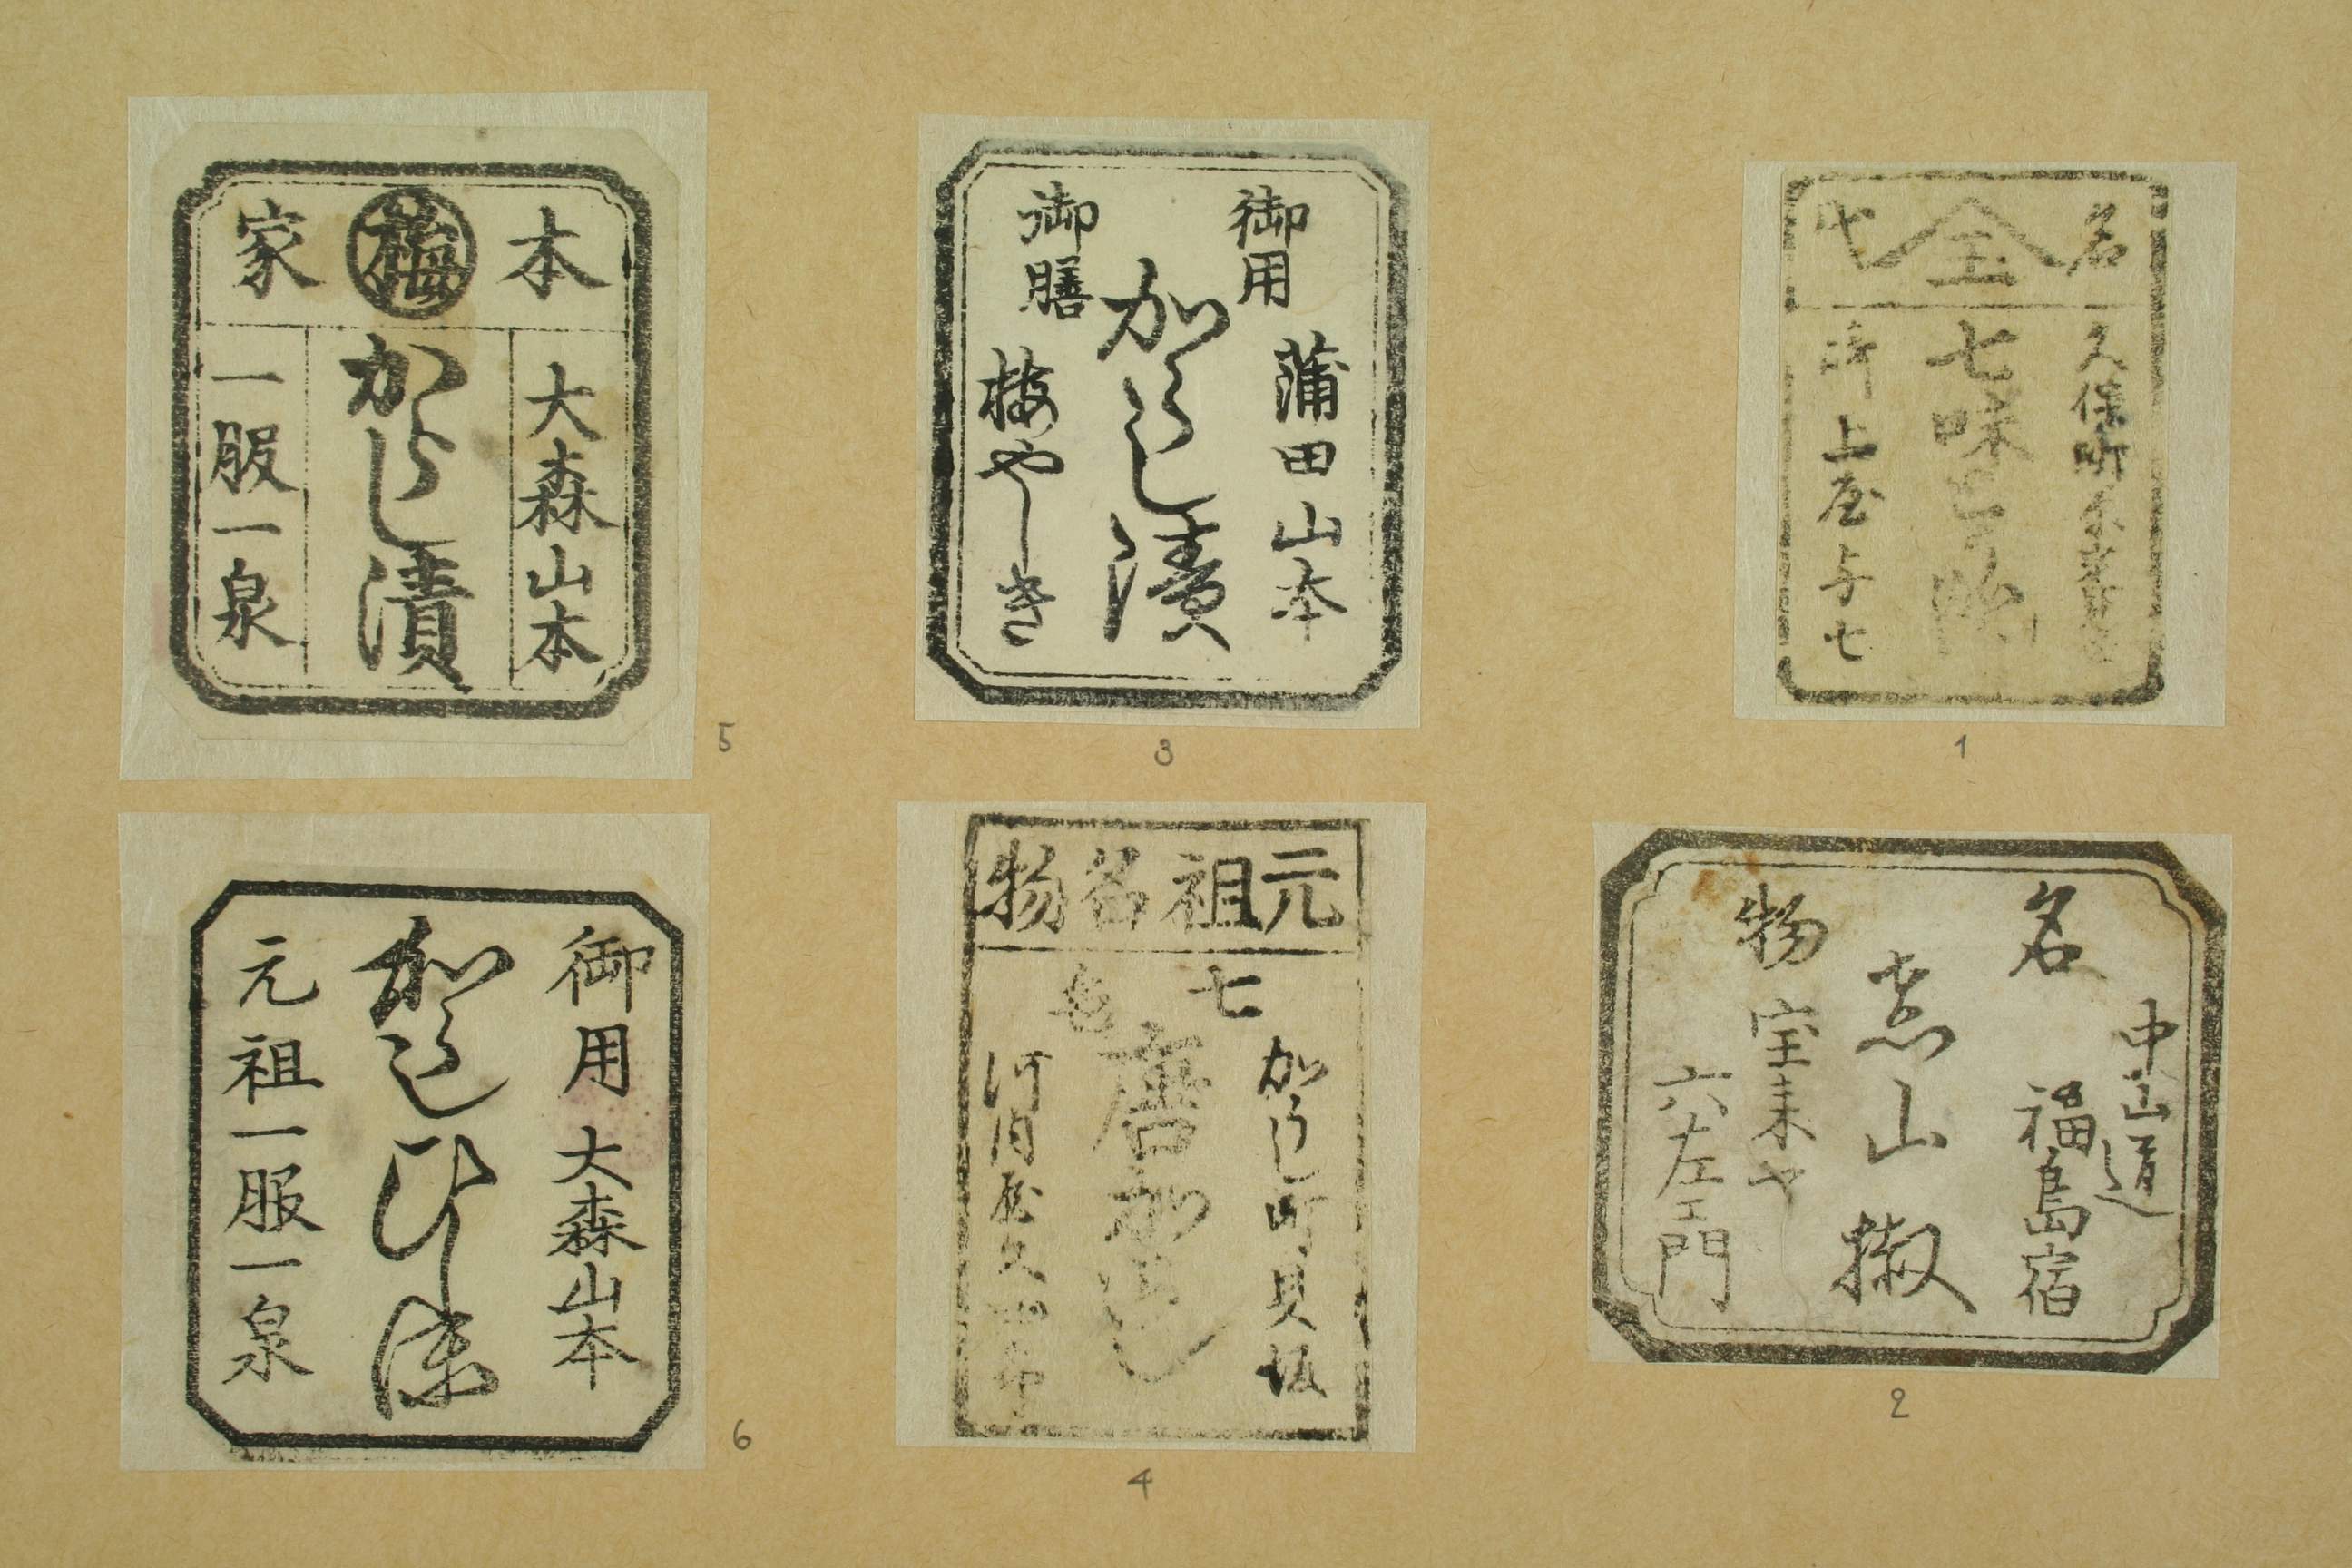 名
七味
上屋与七
1
名物
中山道
福島宿
山椒
宝来や
六左エ門
2
御用
蒲田山本
からし漬
御膳
梅やしき
3
元祖名物
七色
からし町貝坂
唐からし
河内屋久
4
本家
梅
大森山本
からし漬
一服一泉
5
御用
大森山本
からしひし漬
元祖一服一泉
6